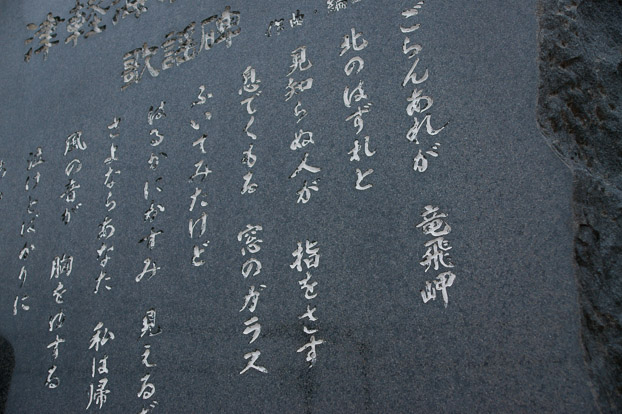 津軽海
歌謡碑
作曲 編
ごらんあれが 竜飛岬
北のはずれと
見知らぬ人が 指をさす
息でくもる 窓のガラス
ふいてみたけど
はるかにかすみ 見えるだ
さよならあなた 私は帰
風の音が 胸をゆする
泣けとばかりに